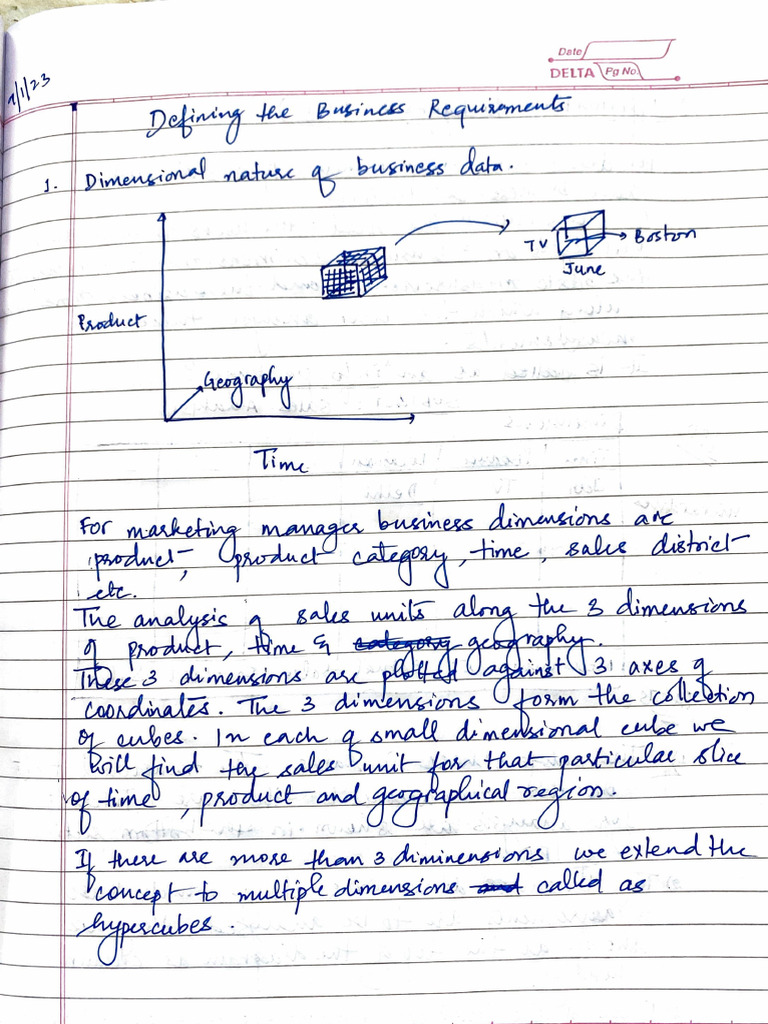 Date
DELTA Pg No.
7/1/23
Defining the Business Requirements
1. Dimensional nature of business data.
TV
Boston
June
Product
Geography
Time
For marketing manager business dimensions are
product, product category, time, sales district
etc.
The analysis of sales units along the 3 dimensions
of product, time & category geography.
These 3 dimensions are plotted against 3 axes of
coordinates. The 3 dimensions form the collection
of cubes. In each of small dimensional cube we
will find the sales unit for that particular slice
of time, product and geographical region.
If there are more than 3 diminensions we extend the
concept to multiple dimensions and called as
hypercubes.